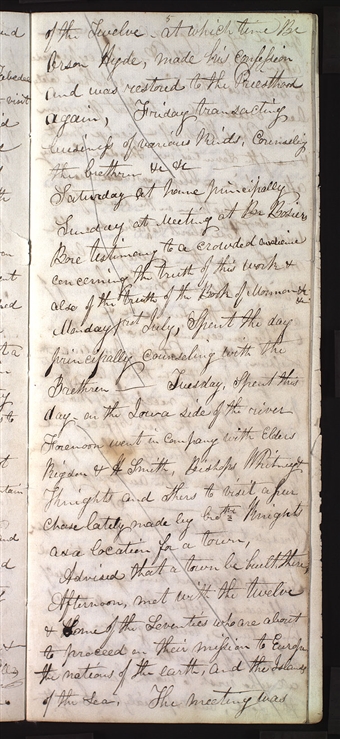 5
of the Twelve - at which time Br
Orson Hyde, made his confession
and was restored to the Priesthood
again, Friday transacting
business of various kinds, Counseling
the brethren &c &c
Saturday at home principally
Sunday at Meeting at Br Bosiers
Bore testimony to a crowded audience
concerning the truth of this work &
also of the truth of the Book of Mormon &c &c
Monday 1st July, Spent the day
principally counseling with the
Brethren Tuesday, Spent this
day on the Iowa side of the river
Forenoon went in company with Elders
Rigdon & H Smith, Bishops Whitney &
Knights and others to visit a pur
chase lately made by brothr Knight
as a location for a town,
Advised that a town be built there,
Afternoon, met with the twelve
& Some of the Seventies who are about
to proceed on their mission to Europe
the nations of the earth, and the Islands
of the Sea. The meeting was